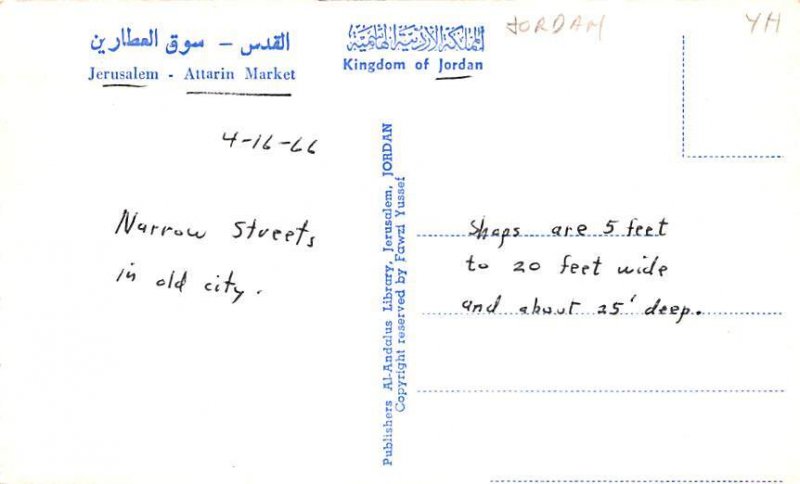 القدس – سوق العطارين
Jerusalem - Attarin Market
المملكة الأردنية الهاشمية
Kingdom of Jordan
JORDAN
YH
4-16-66
Narrow Streets
in old city.
Publishers Al-Andalus Library, Jerusalem, JORDAN
Copyright reserved by Fawzi Yussef
Shops are 5 feet
to 20 feet wide
and about 25' deep.